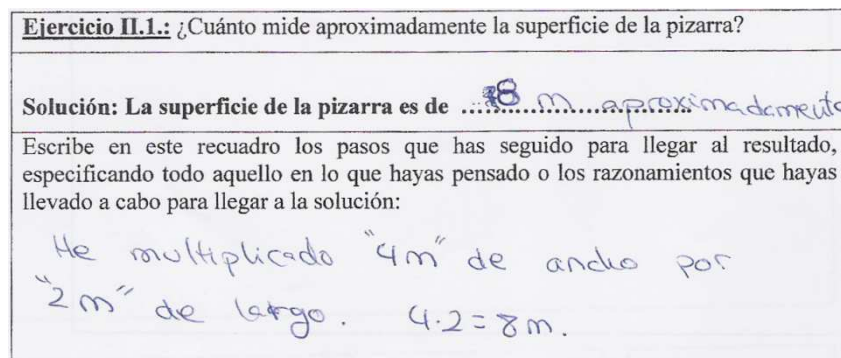 Ejercicio II.1.: ¿Cuánto mide aproximadamente la superficie de la pizarra?
Solución: La superficie de la pizarra es de ...8 m aproximadamente
Escribe en este recuadro los pasos que has seguido para llegar al resultado,
especificando todo aquello en lo que hayas pensado o los razonamientos que hayas
llevado a cabo para llegar a la solución:
He multiplicado "4m" de ancho por
"2m" de largo. 4·2=8m.